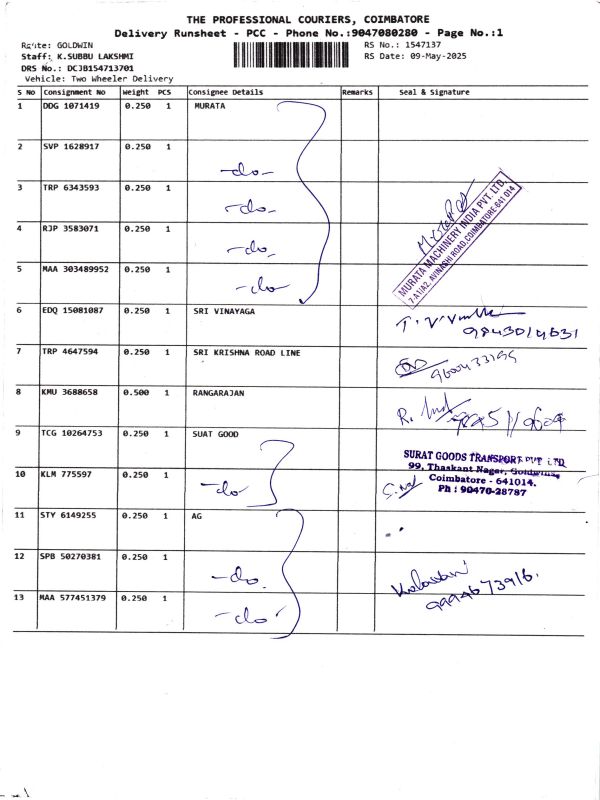 THE PROFESSIONAL COURIERS, COIMBATORE
Delivery Runsheet - PCC - Phone No.:9047080280 - Page No.:1
Route: GOLDWIN RS No.: 1547137
Staff: K.SUBBU LAKSHMI RS Date: 09-May-2025
DRS No.: DCJB154713701
Vehicle: Two Wheeler Delivery
S No Consignment No Weight PCS Consignee Details Remarks Seal & Signature
1 DDG 1071419 0.250 1 MURATA
2 SVP 1628917 0.250 1 -do-
3 TRP 6343593 0.250 1 -do-
4 RJP 3583071 0.250 1 -do-
5 MAA 303489952 0.250 1 -do-
MURATA MACHINERY INDIA PVT. LTD.
7-A1/A2, AVINASHI ROAD, COIMBATORE-641 014
6 EDQ 15081087 0.250 1 SRI VINAYAGA
9843014631
7 TRP 4647594 0.250 1 SRI KRISHNA ROAD LINE
8 KMU 3688658 0.500 1 RANGARAJAN
R.
9 TCG 10264753 0.250 1 SUAT GOOD
SURAT GOODS TRANSPORT PVT LTD
99, Thaskant Nagar, Goldwins,
Coimbatore - 641014.
Ph : 90470-28787
10 KLM 775597 0.250 1 -do-
11 STY 6149255 0.250 1 AG
12 SPB 50270381 0.250 1 -do-
13 MAA 577451379 0.250 1 -do-
9994673916.